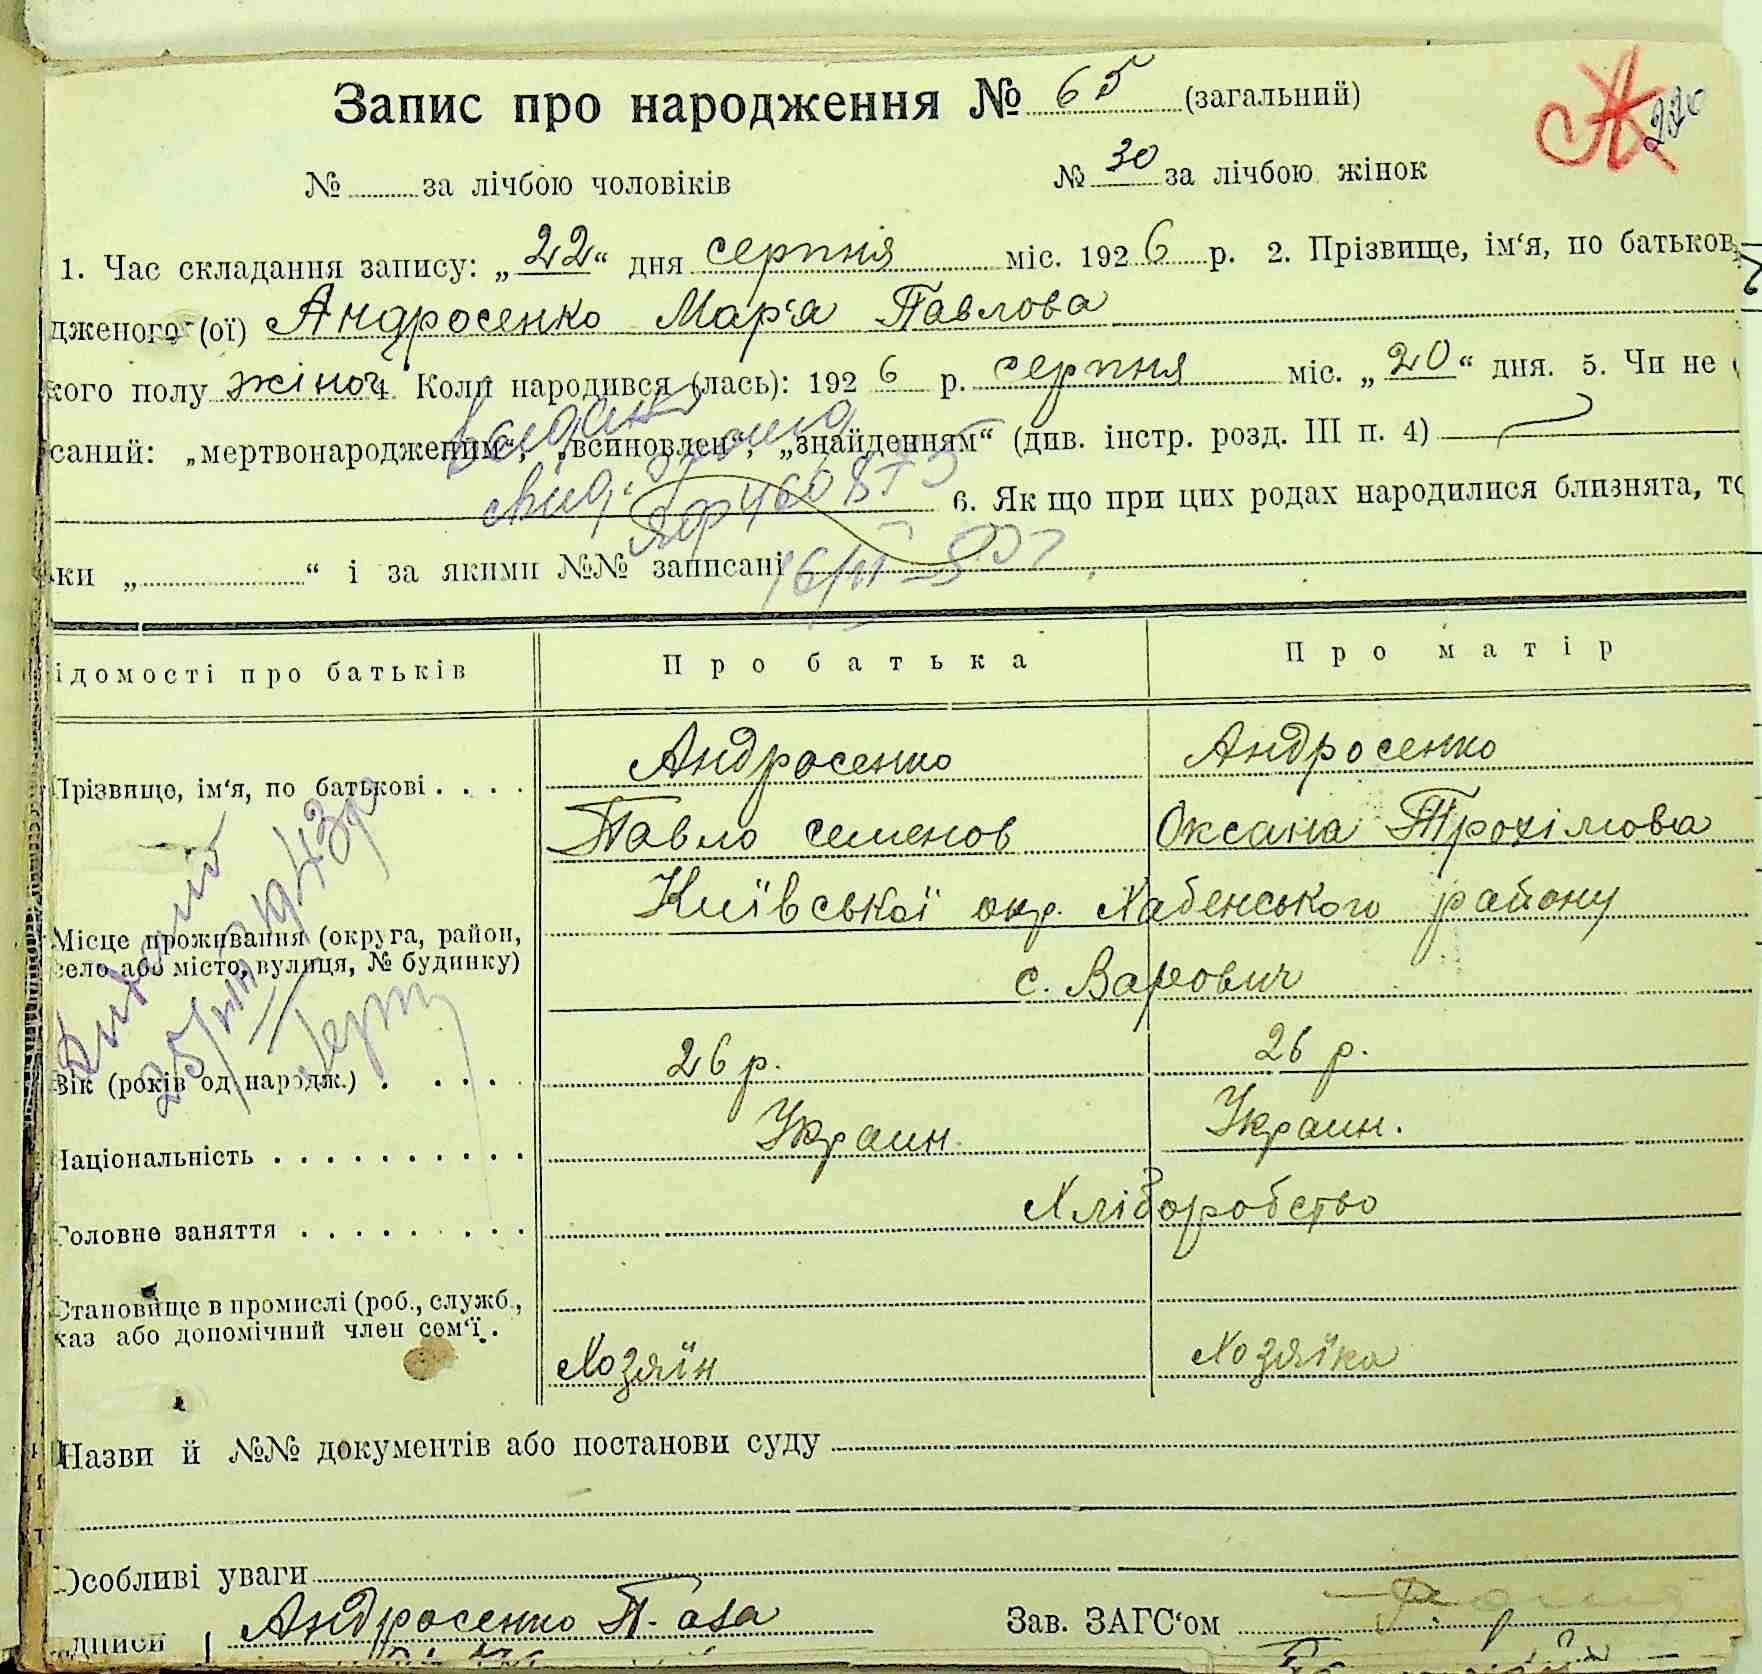 Запис про народження № 65 (загальний)
220
№ ........ за лічбою чоловіків № 30 за лічбою жінок
1. Час складання запису: „22“ дня серпня міс. 1926 р. 2. Прізвище, ім‘я, по батьков
дженого (ої) Андросенко Мар‘я Павлова
кого полу жіноч. 4. Коли народився (лась): 1926 р. серпня міс. „20“ дня. 5. Чи не
саний: „мертвонародженим“, „всиновлен“, „знайденням“ (див. інстр. розд. III п. 4)
6. Як що при цих родах народилися близнята, то
ки „..................“ і за якими №№ записані
ідомості про батьків Про батька Про матір
Андросенко Андросенко
Прізвище, ім‘я, по батькові . . . .
Павло семенов Оксана Трохімова
Київської окр. Хабенського району
Місце проживання (округа, район,
село або місто, вулиця, № будинку)
с. Варович
26 р. 26 р.
Вік (років од народж.) . . . .
Украин. Украин.
Національність . . . . . . . . . .
Хліборобство
Головне заняття . . . . . . . . .
Становище в промислі (роб., служб.,
каз або допомічний член сем‘ї .
Хозяїн Хозяїка
Назви й №№ документів або постанови суду
Особливі уваги
дписи Андросенко П. Зав. ЗАГС‘ом